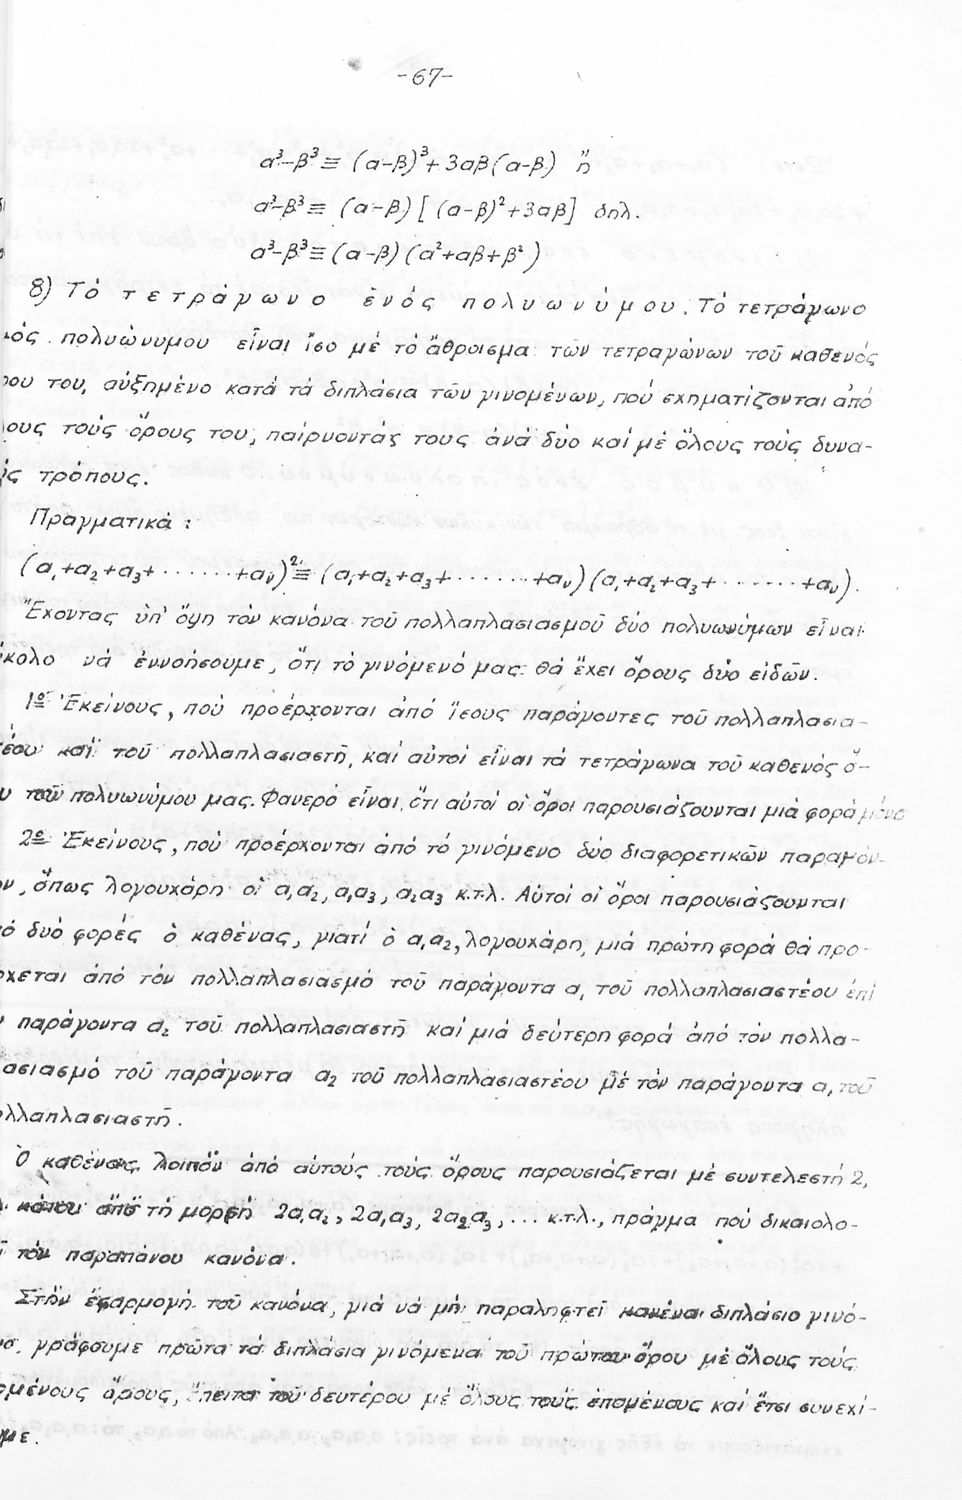 -67-
α³-β³ ≡ (α-β)³+3αβ(α-β) ἤ
α³-β³ ≡ (α-β)[(α-β)²+3αβ] δηλ.
α³-β³ ≡ (α-β)(α²+αβ+β²)
8) Τό τετράγωνο ἑνός πολυωνύμου. Τό τετράγωνο
νός πολυώνυμου εἶναι ἴσο μέ τό ἄθροισμα τῶν τετραγώνων τοῦ καθενός
ρου του, αὐξημένο κατά τά διπλάσια τῶν γινομένων, πού σχηματίζονται ἀπό
λους τούς ὅρους του, παίρνοντάς τους ἀνά δύο καί μέ ὅλους τούς δυνα-
ύς τρόπους.
Πραγματικά :
(α₁+α₂+α₃+ . . . . . . +αν)² ≡ (α₁+α₂+α₃+ . . . . . . +αν)(α₁+α₂+α₃+ . . . . . . +αν).
Ἔχοντας ὑπ' ὄψη τόν κανόνα τοῦ πολλαπλασιασμοῦ δύο πολυωνύμων εἶναι
ὔκολο νά ἐννοήσουμε, ὅτι τό γινόμενό μας θά ἔχει ὅρους δύο εἰδῶν.
1ο Ἐκείνους, πού προέρχονται ἀπό ἴσους παράγοντες τοῦ πολλαπλασια-
τέου καί τοῦ πολλαπλασιαστῆ, καί αὐτοί εἶναι τά τετράγωνα τοῦ καθενός ὅ-
υ τοῦ πολυωνύμου μας. Φανερό εἶναι, ὅτι αὐτοί οἱ ὅροι παρουσιάζουνται μιά φορά μόνο
2ο Ἐκείνους, πού προέρχονται ἀπό τό γινόμενο δύο διαφορετικῶν παραγόν-
ων, ὅπως λογουχάρη οἱ α₁α₂, α₁α₃, α₂α₃ κ.τ.λ. Αὐτοί οἱ ὅροι παρουσιάζουνται
πό δυό φορές ὁ καθένας, γιατί ὁ α₁α₂, λογουχάρη, μιά πρώτη φορά θά προ-
ρχεται ἀπό τόν πολλαπλασιασμό τοῦ παράγοντα α₁ τοῦ πολλαπλασιαστέου ἐπί
ν παράγοντα α₂ τοῦ πολλαπλασιαστῆ καί μιά δεύτερη φορά ἀπό τόν πολλα-
λασιασμό τοῦ παράγοντα α₂ τοῦ πολλαπλασιαστέου μέ τόν παράγοντα α₁ τοῦ
ολλαπλασιαστῆ.
Ὁ καθένας λοιπόν ἀπό αὐτούς τούς ὅρους παρουσιάζεται μέ συντελεστή 2,
κάτου ἀπό τή μορφή 2α₁α₂, 2α₁α₃, 2α₂α₃, ... κ.τ.λ., πράγμα πού δικαιολο-
εῖ τόν παραπάνου κανόνα.
Στήν ἐφαρμογή τοῦ κανόνα, γιά νά μή παραληφτεῖ κανένα διπλάσιο γινό-
νο, γράφουμε πρῶτα τά διπλάσια γινόμενα τοῦ πρώτου ὅρου μέ ὅλους τούς
ομένους ὅρους, ἔπειτα τοῦ δευτέρου μέ ὅλους τούς ἑπομένους καί ἔτσι συνεχί-
υμε.